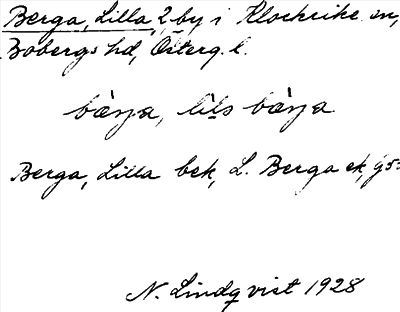 Berga, Lilla, 2 by i Klockrike sn,
Bobergs hd, Österg. l.
bæ̀rja, lìls bæ̀rja
Berga, Lilla bek, L. Berga ek,
N. Lindqvist 1928